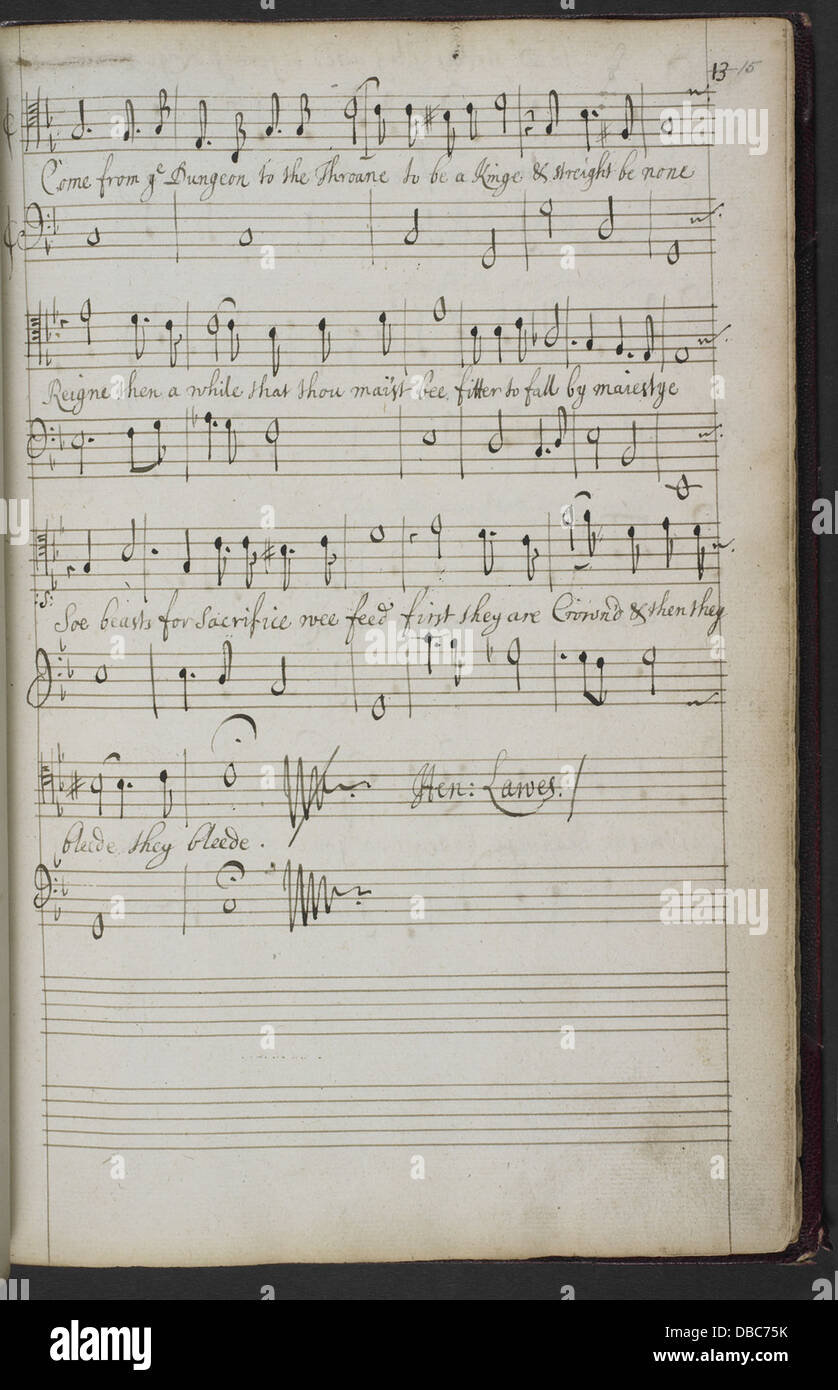 13 15
Come from yᵉ Dungeon to the Throane to be a Kinge & streight be none
Reigne then a while that thou maist bee fitter to fall by maiestye
:S:
Soe beasts for Sacrifice wee feed first they are Crown'd & then they
bleede they bleede .
Hen: Lawes.
alamy
Image ID: DBC75K
www.alamy.com